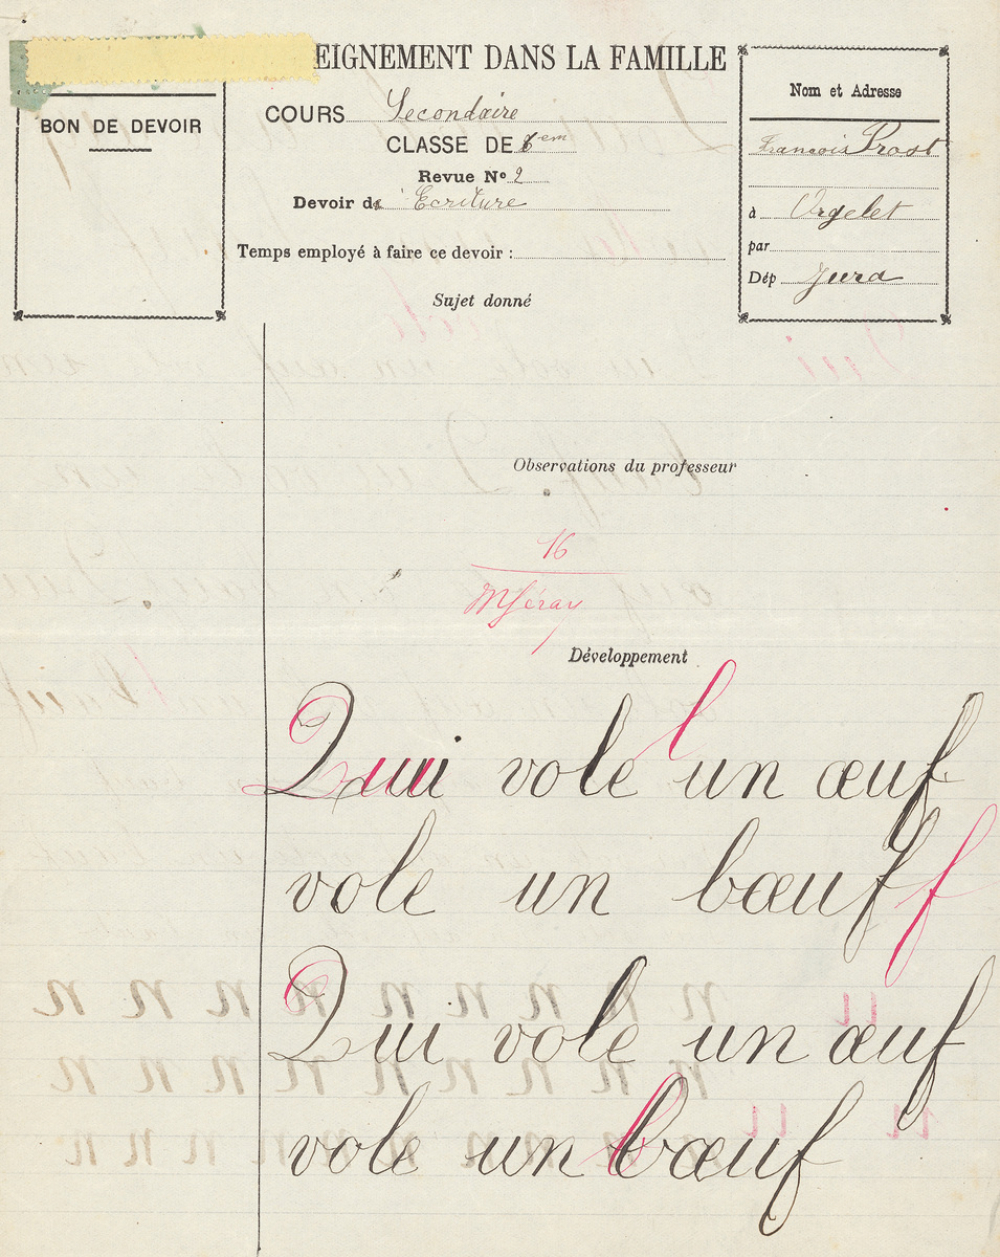 EIGNEMENT DANS LA FAMILLE
BON DE DEVOIR
COURS Secondaire
CLASSE DE 6em
Revue No 2
Devoir d' Ecriture
Temps employé à faire ce devoir :
Sujet donné
Nom et Adresse
François Prost
à Orgelet
par
Dép Jura
Observations du professeur
16
Développement
Qui vole un œuf
vole un bœuf f
Qui vole un œuf
vole un bœuf